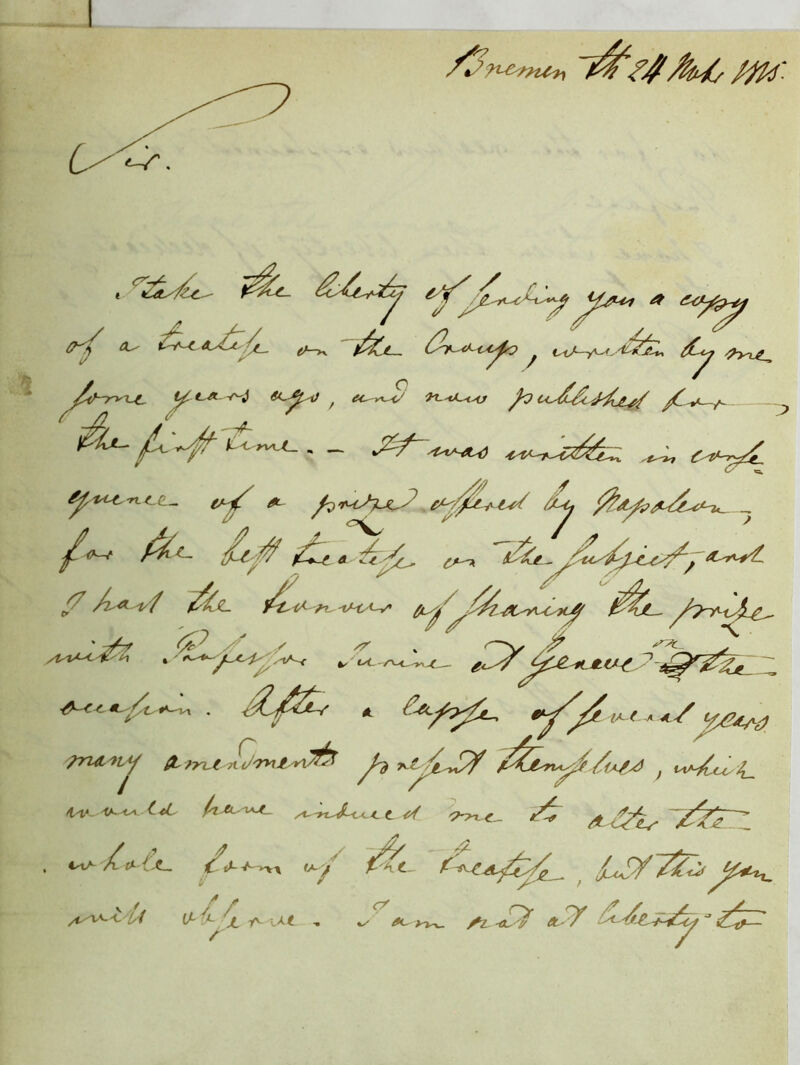 Bremen th 24 Novbr 1815.
Sir.
I take the liberty of sending you a copy
of a treatise on the Croup, written by me
some years ago, and now published for
the first time. - It was written in conse=
quence of a prize offered by Napoleon
for the best treatise on the subject, and
I had the honnour of sharing the prize
with Professor Jurine at Geneve on the
occasion. After a lapse of several years
many amendments present themselves, which
would have induced me to alter the
whole form of the treatese, but this you
will observe. I am not at liberty to